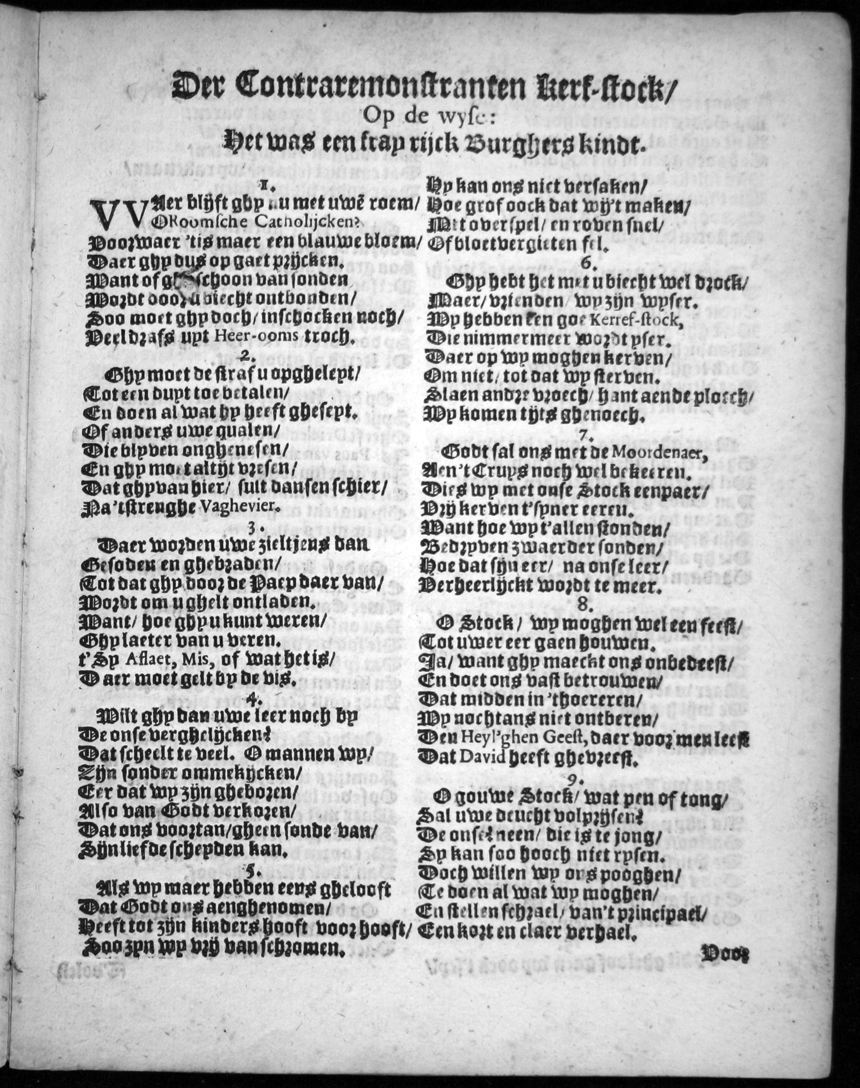 Der Contraremonstranten Kerf-stock/
Op de wyse:
Het was een frap rijck Burghers kindt.
1.
VVAer blijft ghy nu met uwē roem/
O Roomsche Catholijcken?
Voorwaer 'tis maer een blauwe bloem/
Daer ghy dus op gaet prijcken.
Want of ghy schoon van sonden
Wordt door u biecht ontbonden/
Soo moet ghy doch/ inschocken noch/
Veel drafs uyt Heer-ooms troch.
2.
Ghy moet de straf u opgheleyt/
Tot een duyt toe betalen/
En doen al wat hy heeft gheseyt.
Of anders uwe qualen/
Die blyven onghenesen/
En ghy moet altijt vresen/
Dat ghy van hier/ sult dansen schier/
Na 'tstrenghe Vaghevier.
3.
Daer worden uwe zieltjens dan
Gesoden en ghebraden/
Tot dat ghy door de Paep daer van/
Wordt om u ghelt ontladen.
Want/ hoe ghy u kunt weren/
Ghy laeter van u veren.
t'Sy Aflaet, Mis, of wat het is/
Daer moet gelt by de vis.
4.
Wilt ghy dan uwe leer noch by
De onse verghelijcken?
Dat scheelt te veel. O mannen wy/
Zijn sonder ommekijcken/
Eer dat wy zijn gheboren/
Also van Godt verkoren/
Dat ons voortan/gheen sonde van/
Sijn liefde scheyden kan.
5.
Als wy maer hebben eens ghelooft
Dat Godt ons aenghenomen/
Heeft tot zijn kinders hooft voor hooft/
Soo zyn wy vrij van schromen.
Hy kan ons niet versaken/
Hoe grof oock dat wij't maken/
Met overspel/ en roven snel/
Of bloetvergieten fel.
6.
Ghy hebt het met u biecht wel drock/
Maer/ vrienden wy zijn wyser.
Wy hebben een goe Kerref-stock,
Die nimmermeer wordt yser.
Daer op wy moghen kerven/
Om niet/ tot dat wy sterven.
Slaen andre vroech/ hant aende ploech/
Wy komen tijts ghenoech.
7.
Godt sal ons met de Moordenaer,
Aen't Cruys noch wel bekeeren.
Dies wy met onse Stock eenpaer/
Vrij kerven t'syner eeren.
Want hoe wy t'allen stonden/
Bedryven zwaerder sonden/
Hoe dat sijn eer/ na onse leer/
Verheerlijckt wordt te meer.
8.
O Stock/ wy moghen wel een feest/
Tot uwer eer gaen houwen.
Ja/ want ghy maeckt ons onbedeest/
En doet ons vast betrouwen/
Dat midden in 'thoereren/
Wy nochtans niet ontberen/
Den Heyl'ghen Geest, daer voor men leest
Dat David heeft ghevreest.
9.
O gouwe Stock/ wat pen of tong/
Sal uwe deucht volprijsen?
De onse? neen/ die is te jong/
Sy kan soo hooch niet rysen.
Doch willen wy ons pooghen/
Te doen al wat wy moghen/
En stellen schrael/ van't principael/
Een kort en claer verhael.
Voor